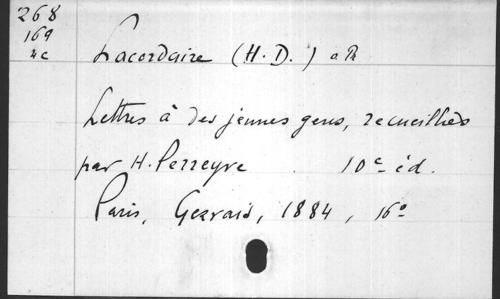 268
169
Lacordaire (H. D.)
Lettres à des jeunes gens, recueillies
par H. Perreyve 10e éd.
Paris, Gervais, 1884, 16º